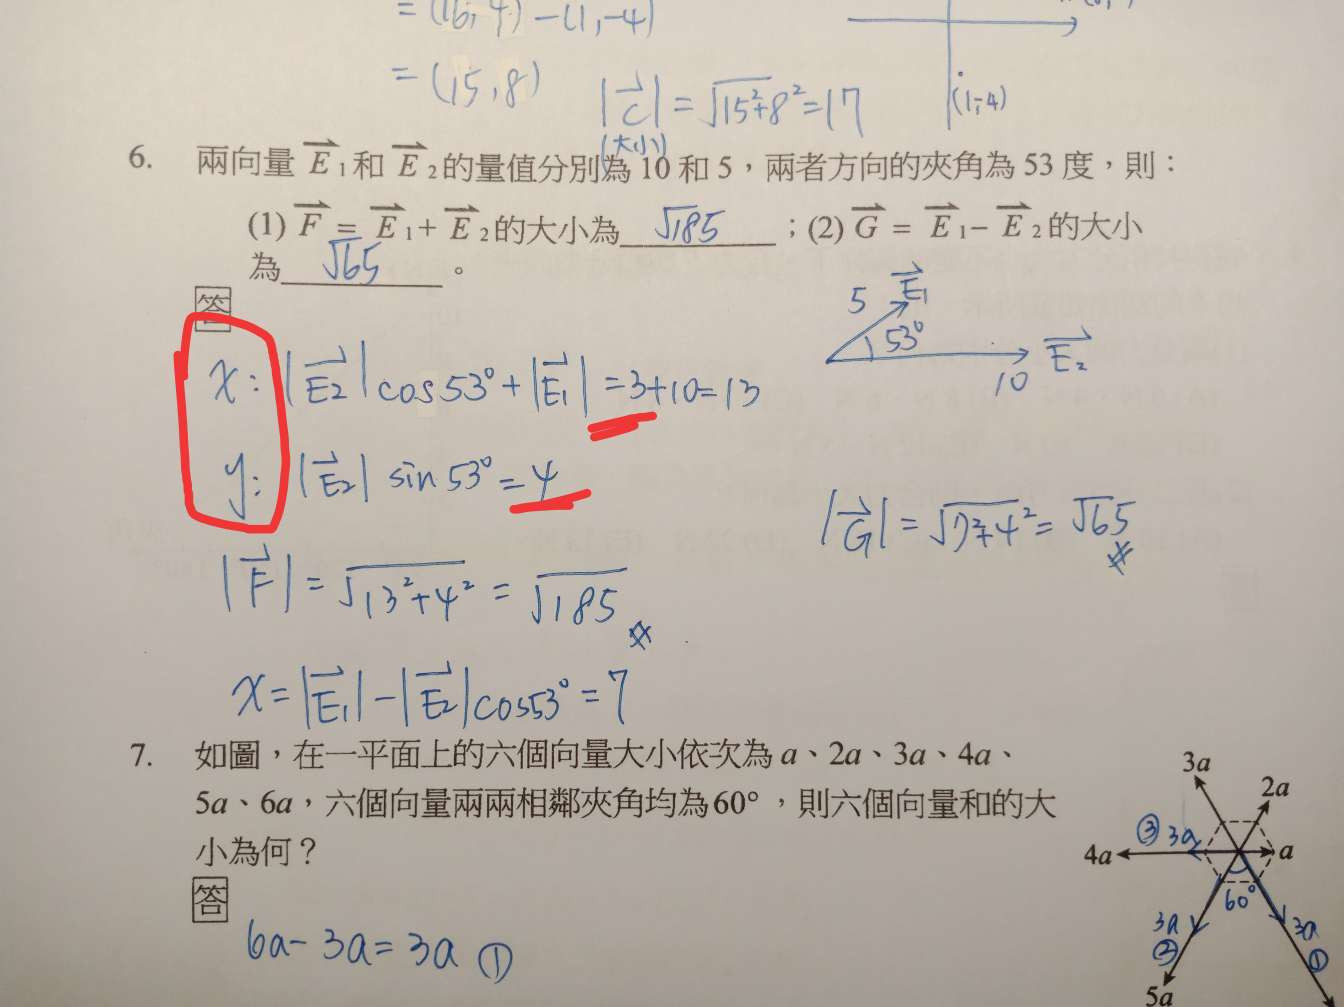 = (16,4) - (1,-4)
= (15,8)
|C| = √15²+8² = 17
(大小)
(1,-4)
6. 兩向量 E₁ 和 E₂ 的量值分別為 10 和 5，兩者方向的夾角為 53 度，則：
(1) F = E₁ + E₂ 的大小為 √185 ；(2) G = E₁ − E₂ 的大小
為 √65 。
答
5 E₁
53°
10 E₂
x: |E₂| cos53° + |E₁| = 3+10 = 13
y: |E₂| sin53° = 4
|G| = √7²+4² = √65
|F| = √13²+4² = √185
x = |E₁| - |E₂| cos53° = 7
7. 如圖，在一平面上的六個向量大小依次為 a、2a、3a、4a、
5a、6a，六個向量兩兩相鄰夾角均為60°，則六個向量和的大
小為何？
答
6a - 3a = 3a ①
3a
2a
③ 3a
4a
a
60°
3a
②
3a
①
5a